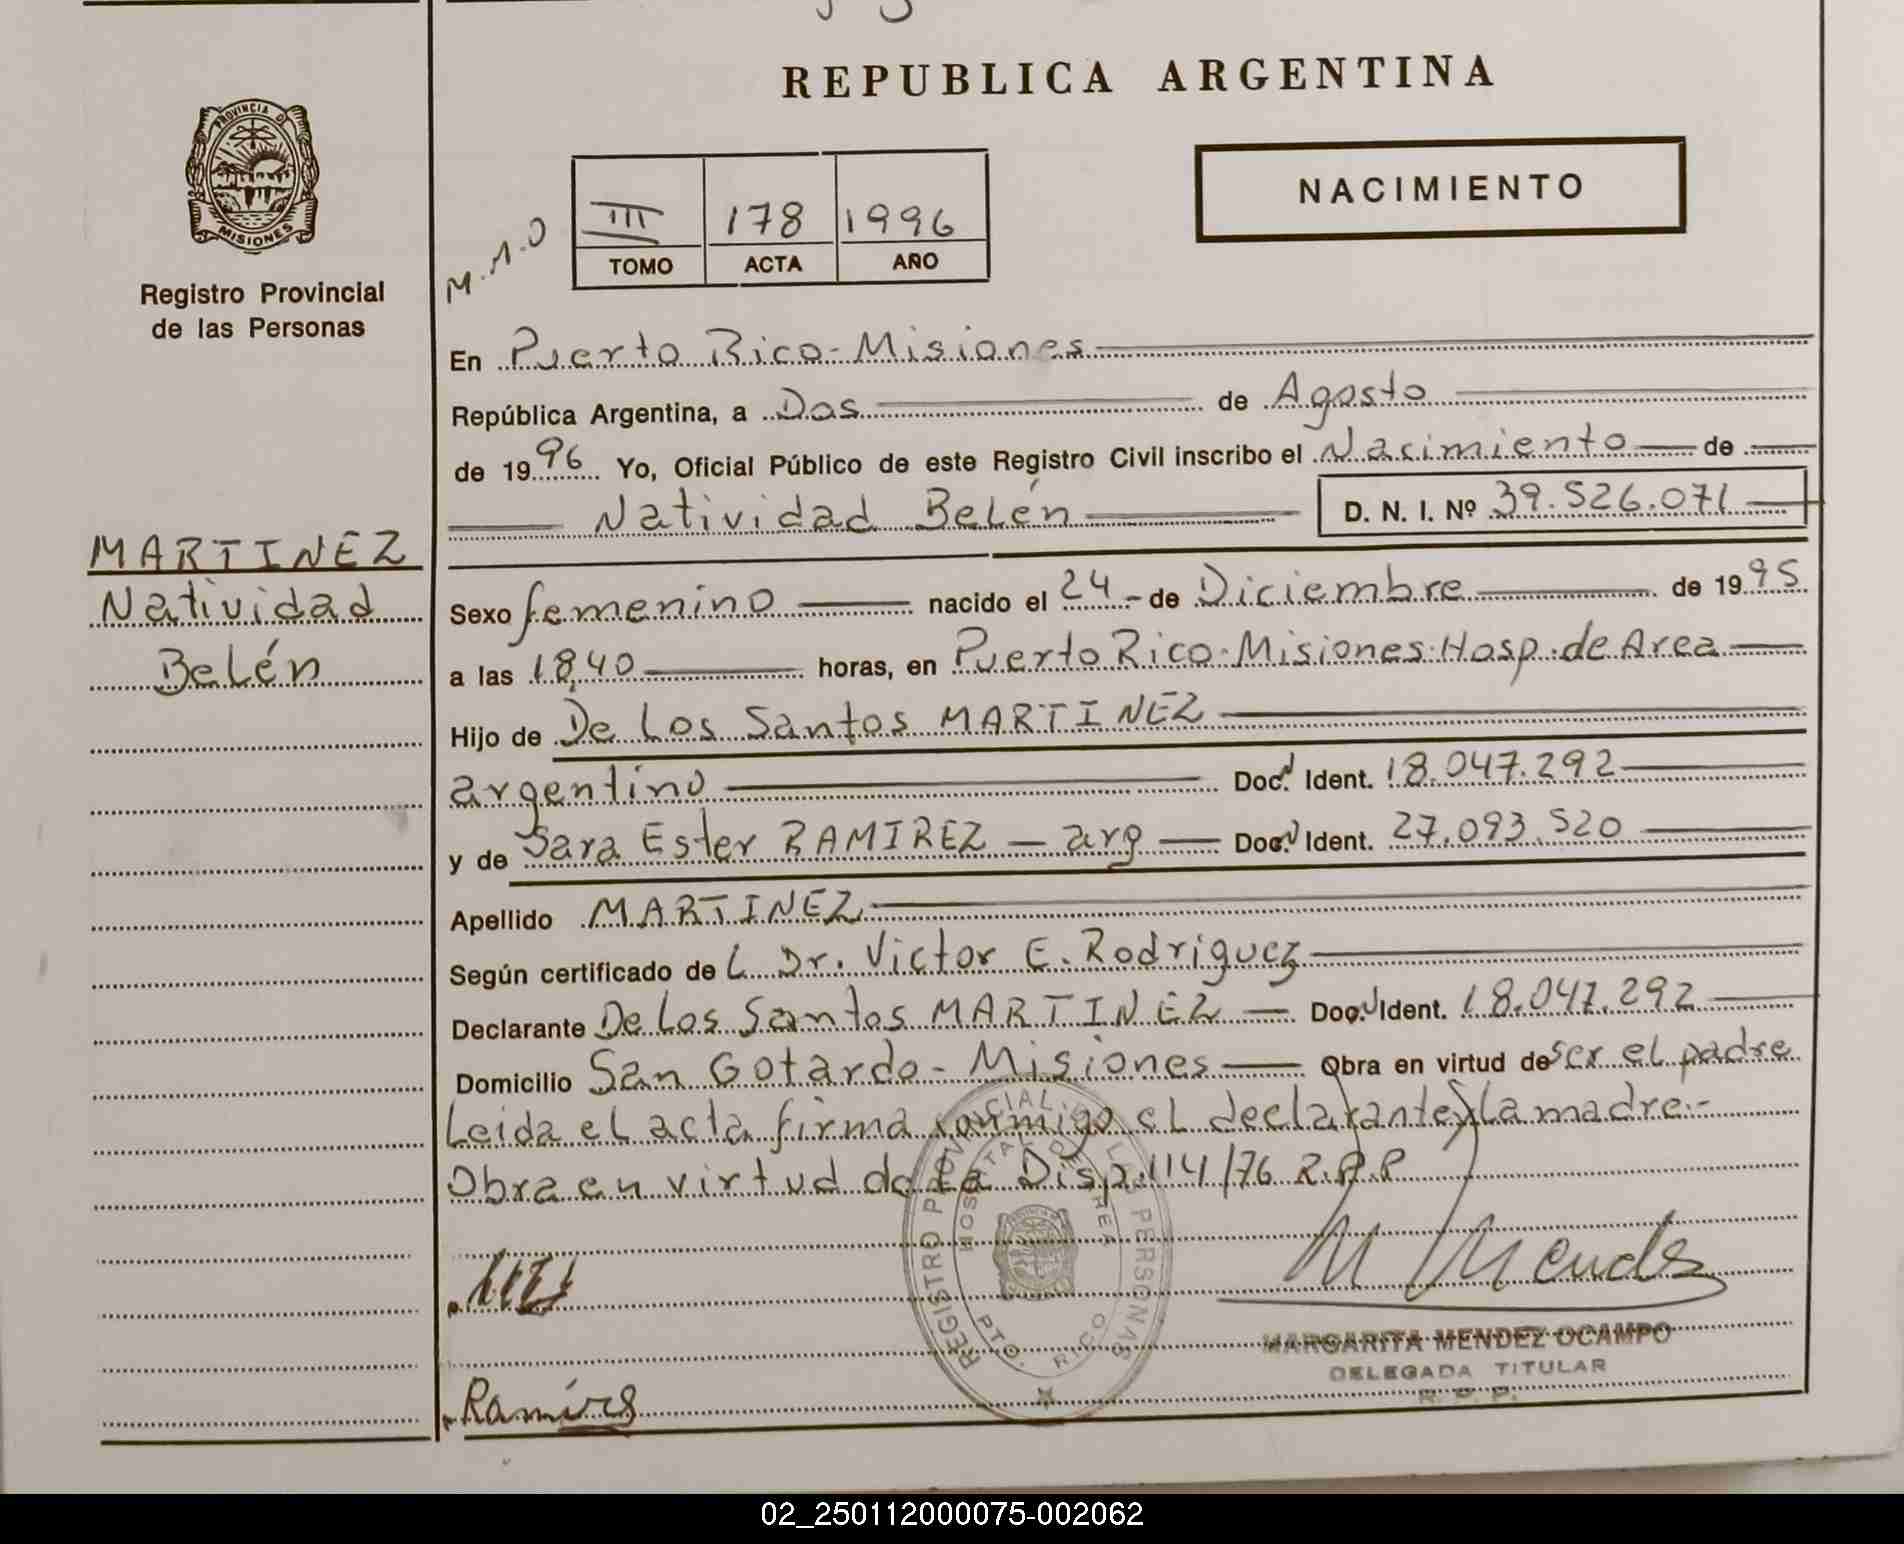 REPUBLICA ARGENTINA
PROVINCIA D
MISIONES
Registro Provincial
de las Personas
MARTINEZ
Natividad
Belén
M.M.O
III 178 1996
TOMO ACTA AÑO
NACIMIENTO
En Puerto Rico - Misiones
República Argentina, a Dos de Agosto
de 1996 Yo, Oficial Público de este Registro Civil inscribo el Nacimiento de
Natividad Belén D. N. I. Nº 39.526.071
Sexo femenino nacido el 24 - de Diciembre de 1995
a las 18,40 horas, en Puerto Rico - Misiones. Hosp. de Area
Hijo de De Los Santos MARTINEZ
argentino Doc. Ident. 18.047.292
y de Sara Ester RAMIREZ — arg — Doc. Ident. 27.093.520
Apellido MARTINEZ
Según certificado de L Dr. Victor E. Rodriguez
Declarante De Los Santos MARTINEZ — Doc. Ident. 18.047.292
Domicilio San Gotardo - Misiones — Obra en virtud de ser el padre
Leida el acta firma conmigo el declarante y la madre.-
Obra en virtud de la Disp. 114/76 R.P.P
REGISTRO PROVINCIAL DE LAS PERSONAS
HOSPITAL DE AREA
PTO. RICO
M Mendez
MARGARITA MENDEZ OCAMPO
DELEGADA TITULAR
R. P. P.
Ramires
02_250112000075-002062